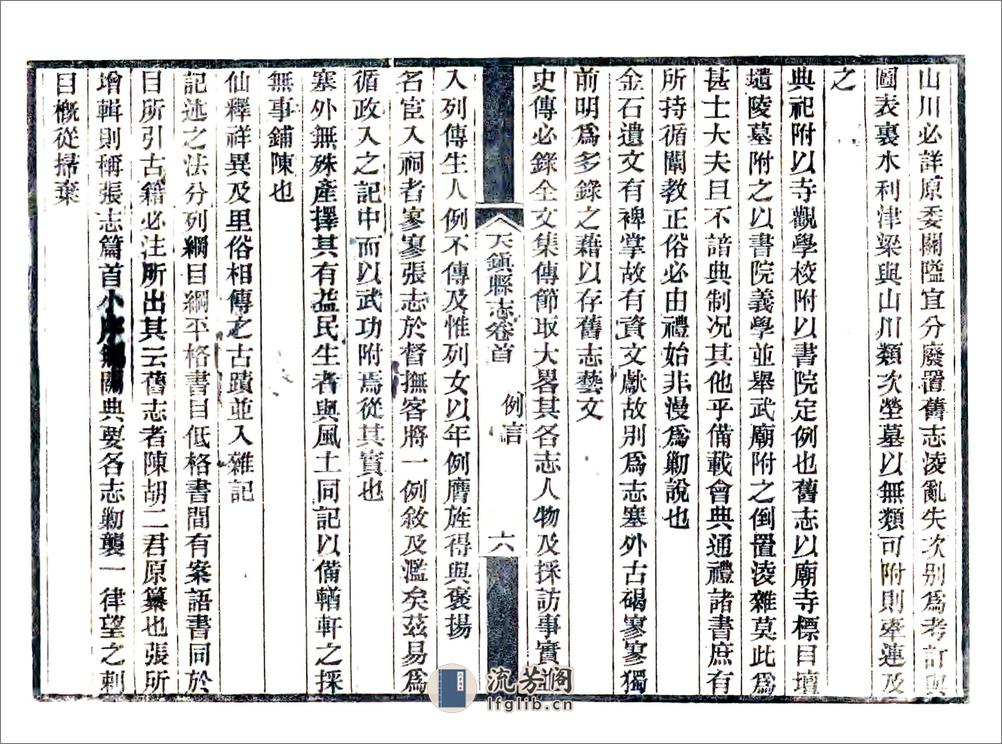 山川必詳原委關隘宜分廢置舊志淩亂失次别爲考訂與
圖表裏水利津梁與山川類次塋墓以無類可附則牽連及
之
典祀附以寺觀學校附以書院定例也舊志以廟寺標目壇
壝陵墓附之以書院義學並舉武廟附之倒置淩雜莫此爲
甚士大夫且不諳典制况其他乎備載會典通禮諸書庶有
所持循闡教正俗必由禮始非漫爲勦說也
金石遺文有裨掌故有資文獻故别爲志塞外古碣寥寥獨
前明爲多錄之藉以存舊志藝文
史傳必錄全文集傳節取大畧其各志人物及採訪事實並
天鎮縣志卷首
例言
六
入列傳生人例不傳及惟列女以年例膺旌得與褒揚
名宦入祠者寥寥張志於督撫客將一例敘及濫矣茲易爲
循政入之記中而以武功附焉從其實也
塞外無殊產擇其有益民生者與風土同記以備輶軒之採
無事鋪陳也
仙釋祥異及里俗相傳之古蹟並入雜記
記述之法分列綱目綱平格書目低格書間有案語書同於
目所引古籍必注所出其云舊志者陳胡二君原纂也張所
增輯則稱張志篇首小序無關典要各志勦襲一律望之刺
目概從掃棄
流芳阁
lfglib.cn